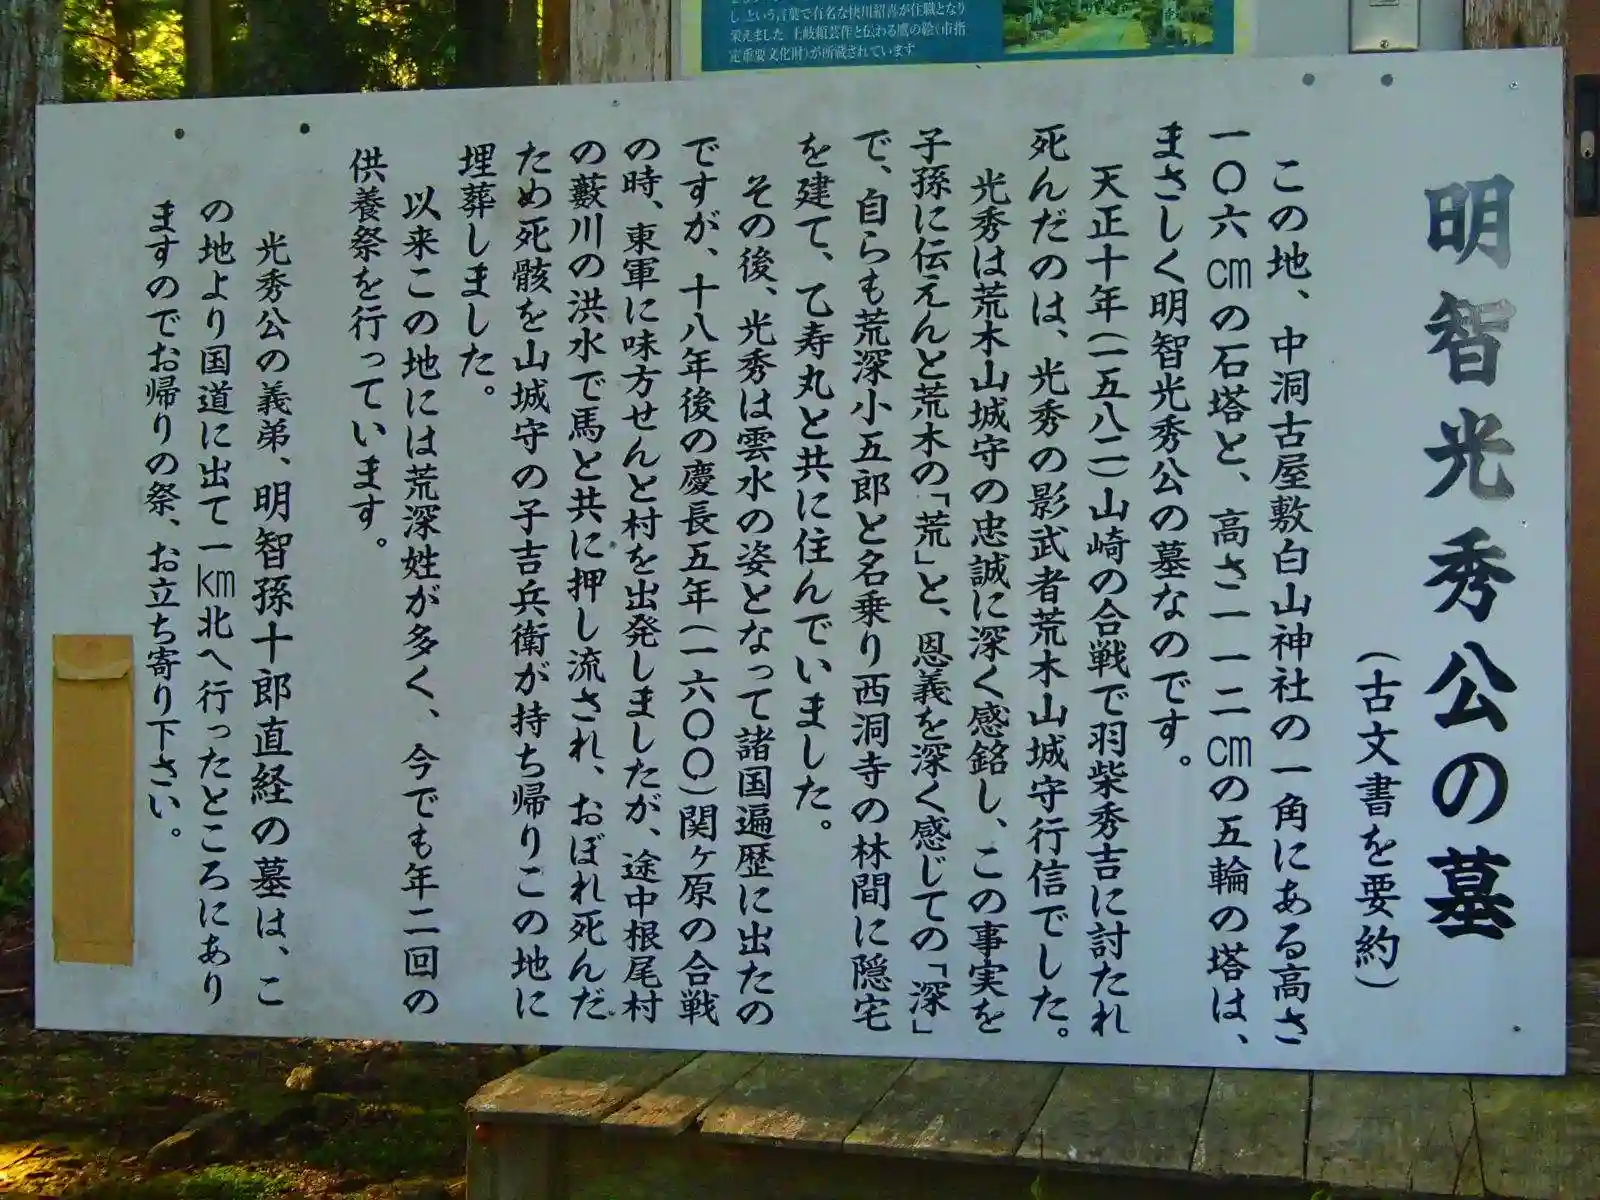 し という言葉で有名な快川紹喜が住職となり
栄えました 土岐頼芸作と伝わる鷹の絵(市指
定重要文化財)が所蔵されています
明智光秀公の墓
(古文書を要約)
この地、中洞古屋敷白山神社の一角にある高さ
一〇六cmの石塔と、高さ一一二cmの五輪の塔は、
まさしく明智光秀公の墓なのです。
天正十年(一五八二)山崎の合戦で羽柴秀吉に討たれ
死んだのは、光秀の影武者荒木山城守行信でした。
光秀は荒木山城守の忠誠に深く感銘し、この事実を
子孫に伝えんと荒木の「荒」と、恩義を深く感じての「深」
で、自らも荒深小五郎と名乗り西洞寺の林間に隠宅
を建て、乙寿丸と共に住んでいました。
その後、光秀は雲水の姿となって諸国遍歴に出たの
ですが、十八年後の慶長五年(一六〇〇)関ヶ原の合戦
の時、東軍に味方せんと村を出発しましたが、途中根尾村
の藪川の洪水で馬と共に押し流され、おぼれ死んだ
ため死骸を山城守の子吉兵衛が持ち帰りこの地に
埋葬しました。
以来この地には荒深姓が多く、今でも年二回の
供養祭を行っています。
光秀公の義弟、明智孫十郎直経の墓は、こ
の地より国道に出て一km北へ行ったところにあり
ますのでお帰りの祭、お立ち寄り下さい。